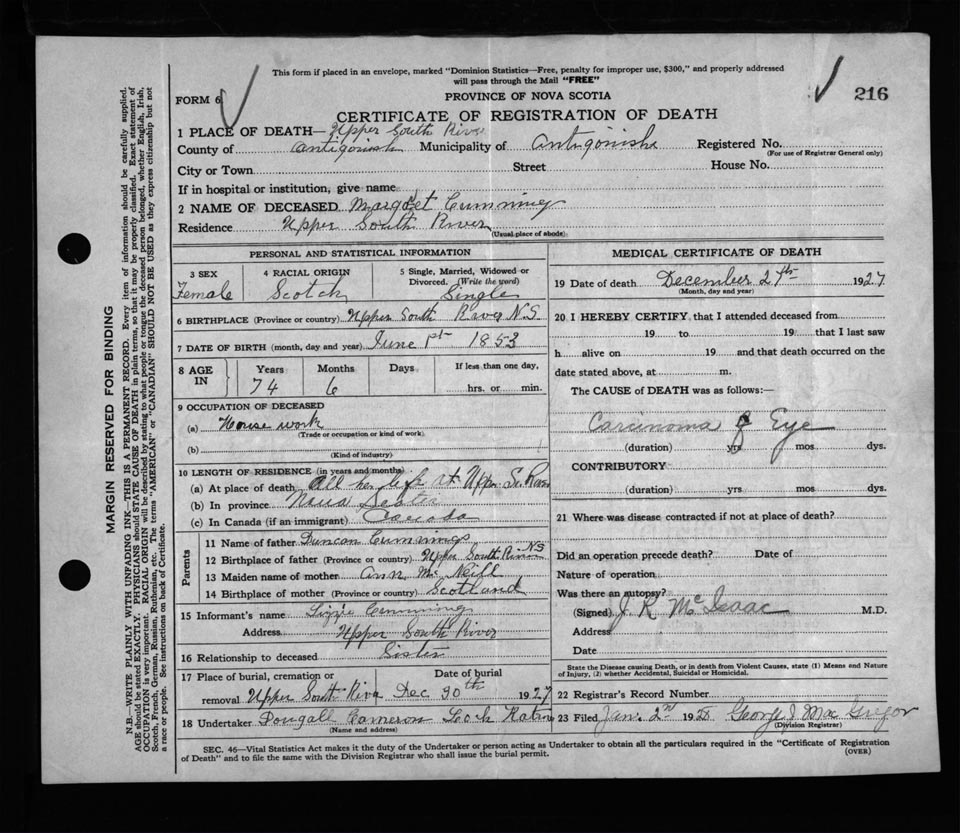 This form if placed in an envelope, marked "Dominion Statistics—Free, penalty for improper use, $300," and properly addressed
will pass through the Mail "FREE"
FORM 6
PROVINCE OF NOVA SCOTIA
216
CERTIFICATE OF REGISTRATION OF DEATH
1 PLACE OF DEATH— Upper South River
County of Antigonish Municipality of Antigonishe Registered No.
(For use of Registrar General only)
City or Town Street House No.
If in hospital or institution, give name
2 NAME OF DECEASED Margret Cumming
Residence Upper South River
(Usual place of abode)
PERSONAL AND STATISTICAL INFORMATION
3 SEX 4 RACIAL ORIGIN 5 Single, Married, Widowed or
Divorced. (Write the word)
Female Scotch Single
6 BIRTHPLACE (Province or country) Upper South River N.S
7 DATE OF BIRTH (month, day and year) June 1st 1853
8 AGE IN Years Months Days If less than one day,
74 6 hrs. or min.
9 OCCUPATION OF DECEASED
(a) House work
(Trade or occupation or kind of work)
(b)
(Kind of industry)
10 LENGTH OF RESIDENCE (in years and months)
(a) At place of death All her life at Upper So. River
(b) In province Nova Scotia
(c) In Canada (if an immigrant) Canada
Parents
11 Name of father Duncan Cummings
12 Birthplace of father (Province or country) Upper South River N S
13 Maiden name of mother Ann Mc Neill
14 Birthplace of mother (Province or country) Scotland
15 Informant's name Lizzie Cumming
Address Upper South River
16 Relationship to deceased Sister
17 Place of burial, cremation or Date of burial
removal Upper South River Dec 30th 1927
18 Undertaker Dougall Cameron Loch Katrine
(Name and address)
MEDICAL CERTIFICATE OF DEATH
19 Date of death December 27th 1927
(Month, day and year)
20 I HEREBY CERTIFY, that I attended deceased from
19 to 19 that I last saw
h alive on 19 and that death occurred on the
date stated above, at m.
The CAUSE of DEATH was as follows:—
Carcinoma of Eye
(duration) yrs mos dys.
CONTRIBUTORY
(duration) yrs mos dys.
21 Where was disease contracted if not at place of death?
Did an operation precede death? Date of
Nature of operation
Was there an autopsy?
(Signed) J R McIsaac M.D.
Address
Date
State the Disease causing Death, or in death from Violent Causes, state (1) Means and Nature
of Injury, (2) whether Accidental, Suicidal or Homicidal.
22 Registrar's Record Number
23 Filed Jan. 2nd 19 George J. MacGregor
(Division Registrar)
SEC. 46—Vital Statistics Act makes it the duty of the Undertaker or person acting as Undertaker to obtain all the particulars required in the "Certificate of Registration
of Death" and to file the same with the Division Registrar who shall issue the burial permit.
(OVER)
MARGIN RESERVED FOR BINDING
N.B.—WRITE PLAINLY WITH UNFADING INK—THIS IS A PERMANENT RECORD. Every item of information should be carefully supplied.
AGE should be stated EXACTLY. PHYSICIANS should STATE CAUSE OF DEATH in plain terms, so that it may be properly classified. Exact statement of
OCCUPATION is very important. RACIAL ORIGIN will be described by stating to what people or tongue the deceased person belonged, whether English, Irish,
Scotch, French, German, Russian, Ruthenian, etc. The terms "AMERICAN" or "CANADIAN" SHOULD NOT BE USED as they express citizenship but not
a race or people. See instructions on back of Certificate.